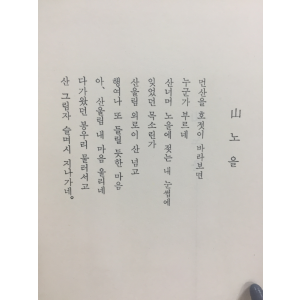 山 노 을
먼산을 호젓이 바라보면
누군가 부르네
산너머 노을에 젖는 내 눈썹에
잊었던 목소린가
산울림 외로이 산 넘고
행여나 또 들릴 듯한 마음
아, 산울림 내 마음 울리네
다가왔던 봉우리 물러서고
산 그림자 슬며시 지나가네。